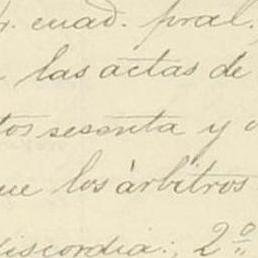 r. cuad. pral.
las actas de
tos sesenta y o
ue los árbitros
discordia:, 2º.